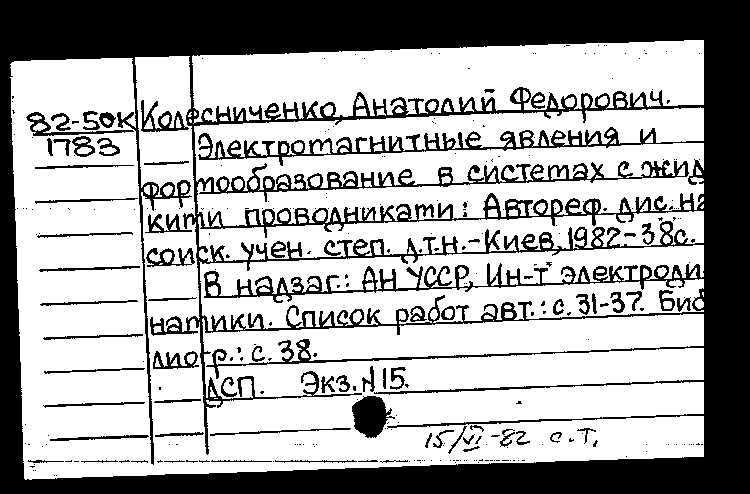 82-50к Колесниченко, Анатолий Федорович.
1783 Электромагнитные явления и
формообразование в системах с жид
кими проводниками: Автореф. дис. на
соиск. учен. степ. д.т.н.-Киев, 1982-38с.
В надзаг.: АН УССР, Ин-т электроди
намики. Список работ авт.: с. 31-37. Биб
лиогр.: с. 38.
ДСП. Экз. N 15.
15/VI-82 с.т.